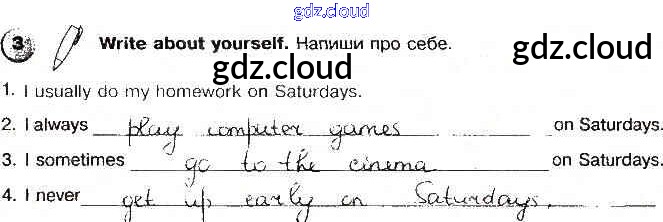 gdz.cloud
3 Write about yourself. Напиши про себе.
gdz.cloud
gdz.cloud
1. I usually do my homework on Saturdays.
2. I always play computer games on Saturdays.
3. I sometimes go to the cinema on Saturdays.
4. I never get up early on Saturdays.